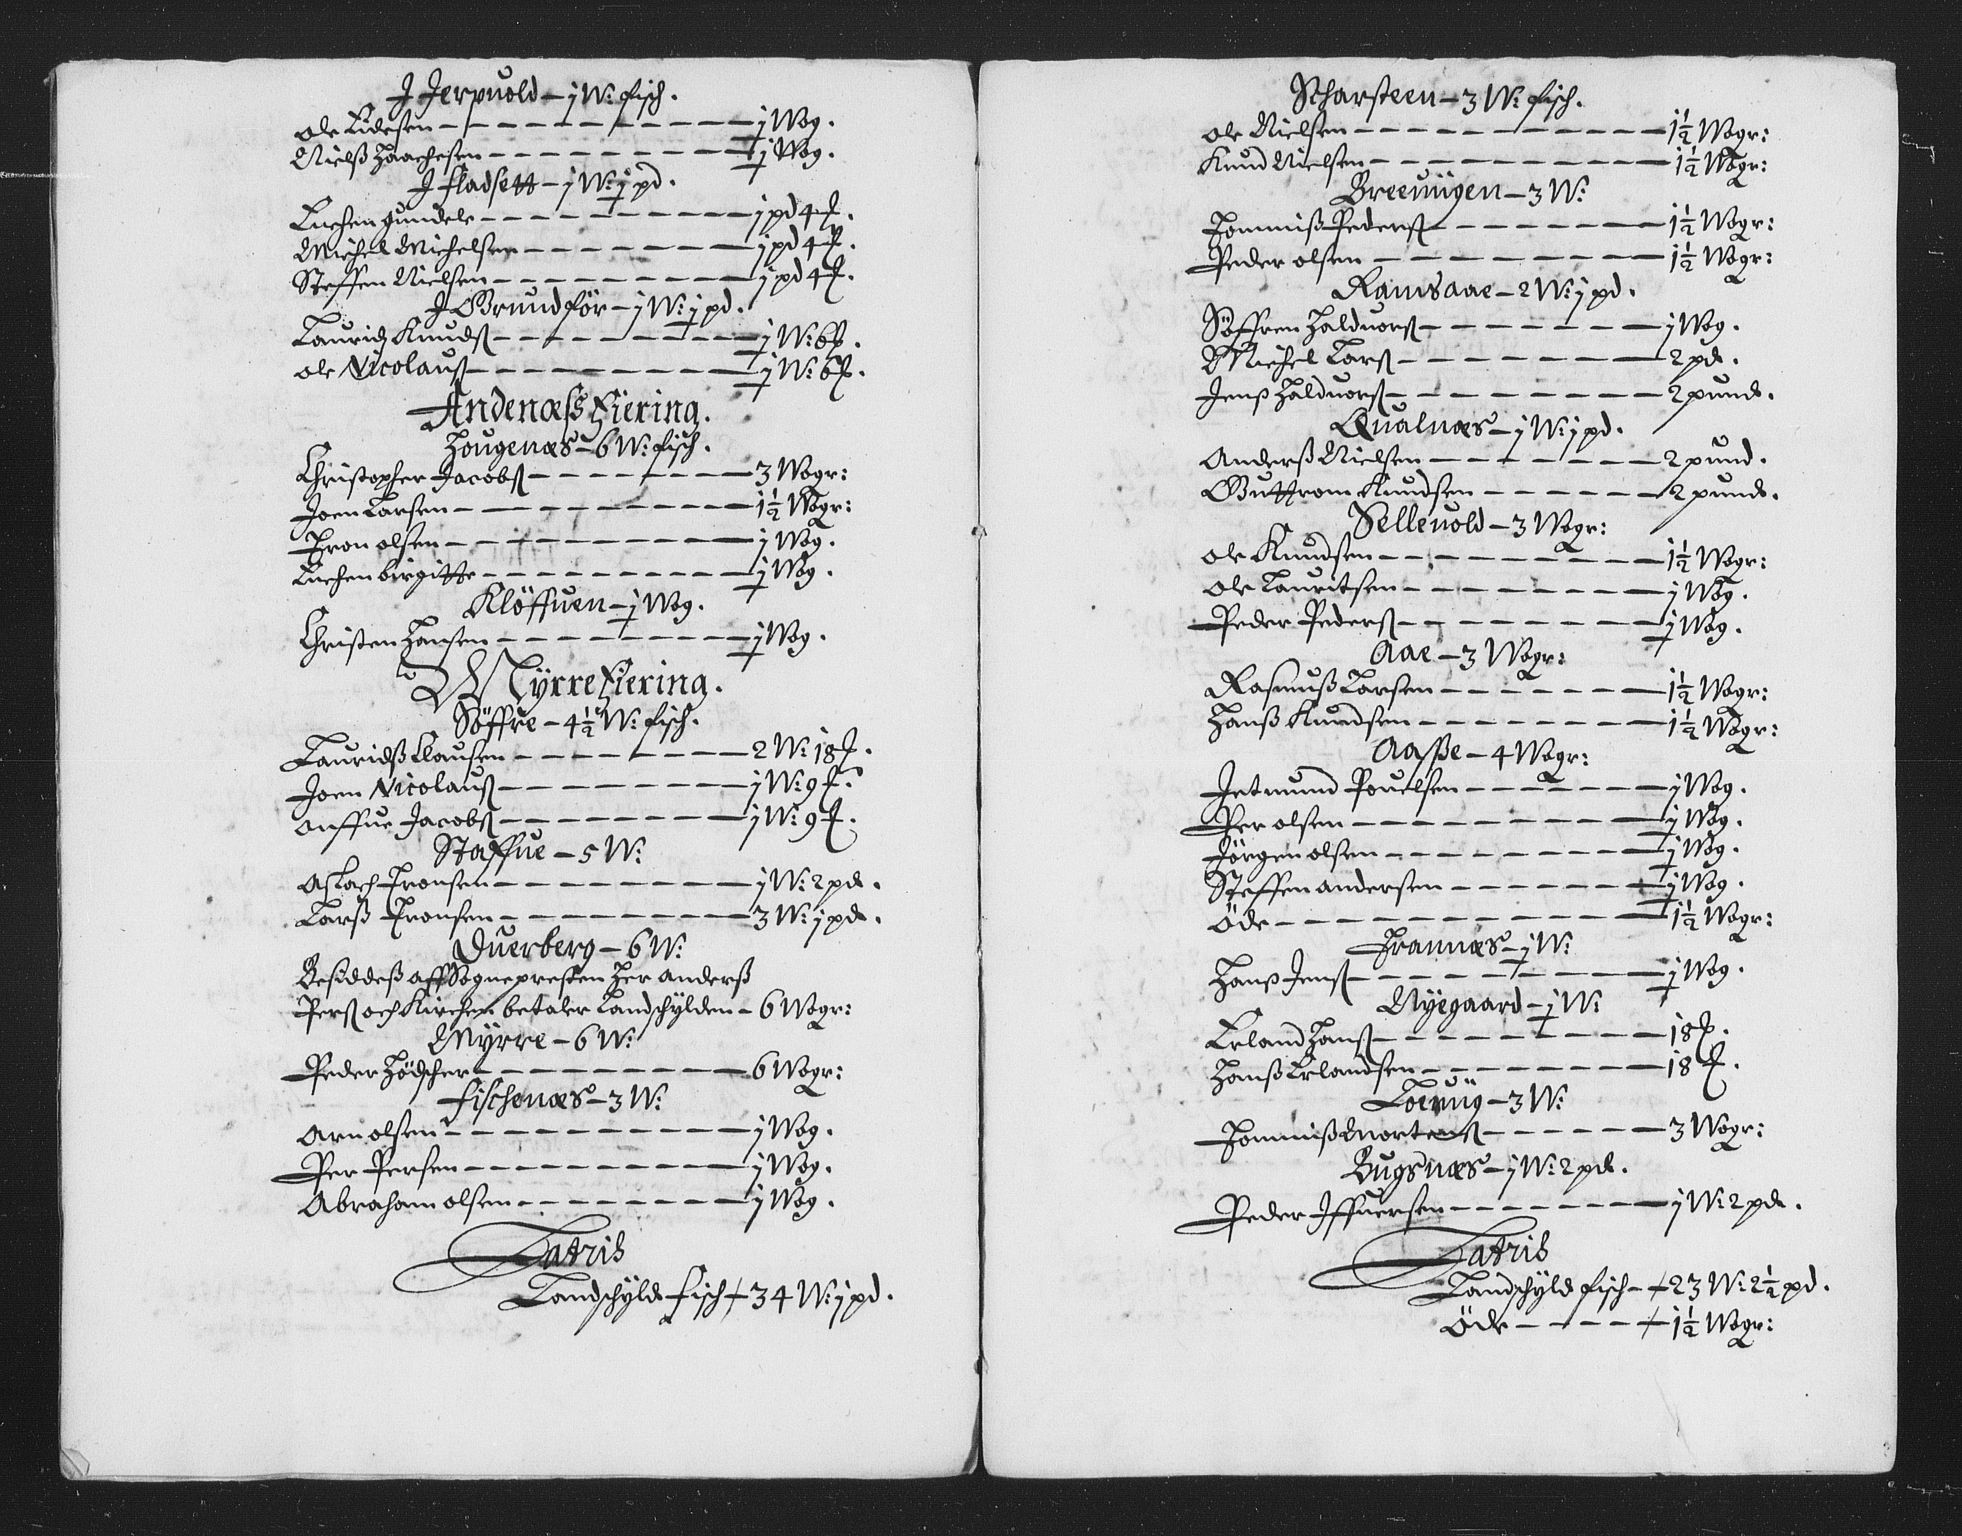 J Jerpuold – j W: fisch.
Ole Eidesen – j Wog.
Nielß Haachesen – j Wog.
J Fladsett – j W: j pd.
Enchen gundele – j pd 4 ₰.
Michel Michelsen – j pd 4 ₰.
Steffen Nielsen – j pd 4 ₰.
J Grundför – j W: j pd.
Lauridz Knudß – j W: 6 ₰.
Ole Nicolauß – j W: 6 ₰.
Andenæss Fiering.
Hougenæs – 6 W: fisch.
Christopher Jacobß – 3 Wogr:
Joen Larsen – 1½ Wogr:
Tron olsen – j Wog.
Enchen birgitte – j Wog.
Klöffuen – j Wog.
Christen Hansen – j Wog.
Mÿrre Fiering.
Söffre – 4½ W: fisch.
Lauridß Clausen – 2 W: 18 ₰.
Joen Nicolauß – j W: 9 ₰.
Anffue Jacobß – j W: 9 ₰.
Staffue – 5 W:
Aslach Tronsen – j W: 2 pd.
Larß Tronsen – 3 W: j pd.
Duerberg – 6 W:
Besiddeß aff Sognepresten Her Anderß
Perß och Kirchen betaler Landschÿlden – 6 Wogr:
Mÿrre – 6 W:
Peder Hödscher – 6 Wogr:
Fischenæs – 3 W:
Arn olsen – j Wog.
Per Persen – j Wog.
Abraham olsen – j Wog.
Latris
Landschÿld Fisch – 34 W: j pd.
Scharsteen – 3 W: fisch.
Ole Nielsen – 1½ Wogr:
Knud Nielsen – 1½ Wogr:
Breeuiigen – 3 W:
Tommiß Pederß – 1½ Wogr:
Peder olsen – 1½ Wogr:
Ramsaae – 2 W: j pd.
Söffren Halduorß – j Wog.
Michel Larß – 2 pd.
Jenß Halduorß – 2 pund.
Qualnæs – j W: j pd.
Anderß Nielsen – 2 pund.
Guttrom Knudsen – 2 pund.
Selleuold – 3 Wogr:
Ole Knudsen – 1½ Wogr:
Ole Lauritsen – j Wog.
Peder Pederß – j Wog.
Aae – 3 Wogr:
Rasmuß Larsen – 1½ Wogr:
Hanß Knudsen – 1½ Wogr:
Aaße – 4 Wogr:
Jetmund Pouelsen – j Wog.
Per olsen – j Wog.
Jörgen olsen – j Wog.
Steffen andersen – j Wog.
Öde – 1½ Wogr:
Trannæs – j W:
Hanß Jenß – j Wog.
Nÿegaard – j W:
Erland Hanß – 18 ₰.
Hanß Erlandsen – 18 ₰.
Loeuiig – 3 W:
Tommiß Mortenß – 3 Wogr:
Bugsnæs – j W: 2 pd.
Peder Jffuersen – j W: 2 pd.
Latris
Landschÿld fisch – 23 W: 2½ pd.
Öde – 1½ Wogr: